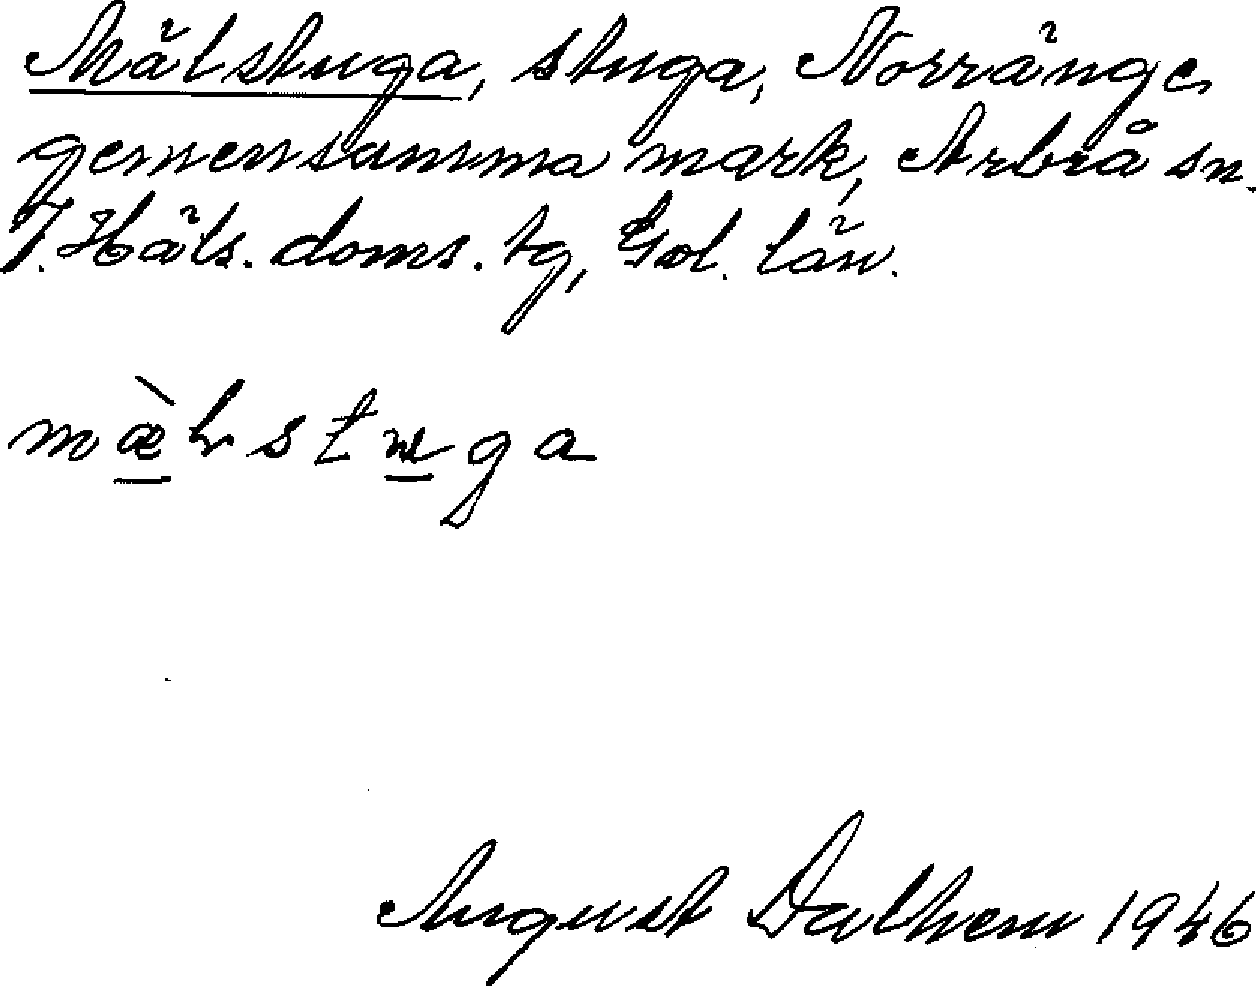 Mälstuga, stuga, Norränge
gemensamma mark, Arbrå sn.
V. Häls. doms. tg, Gvl. län.
mæ̀lstuga
August Dalhem 1946